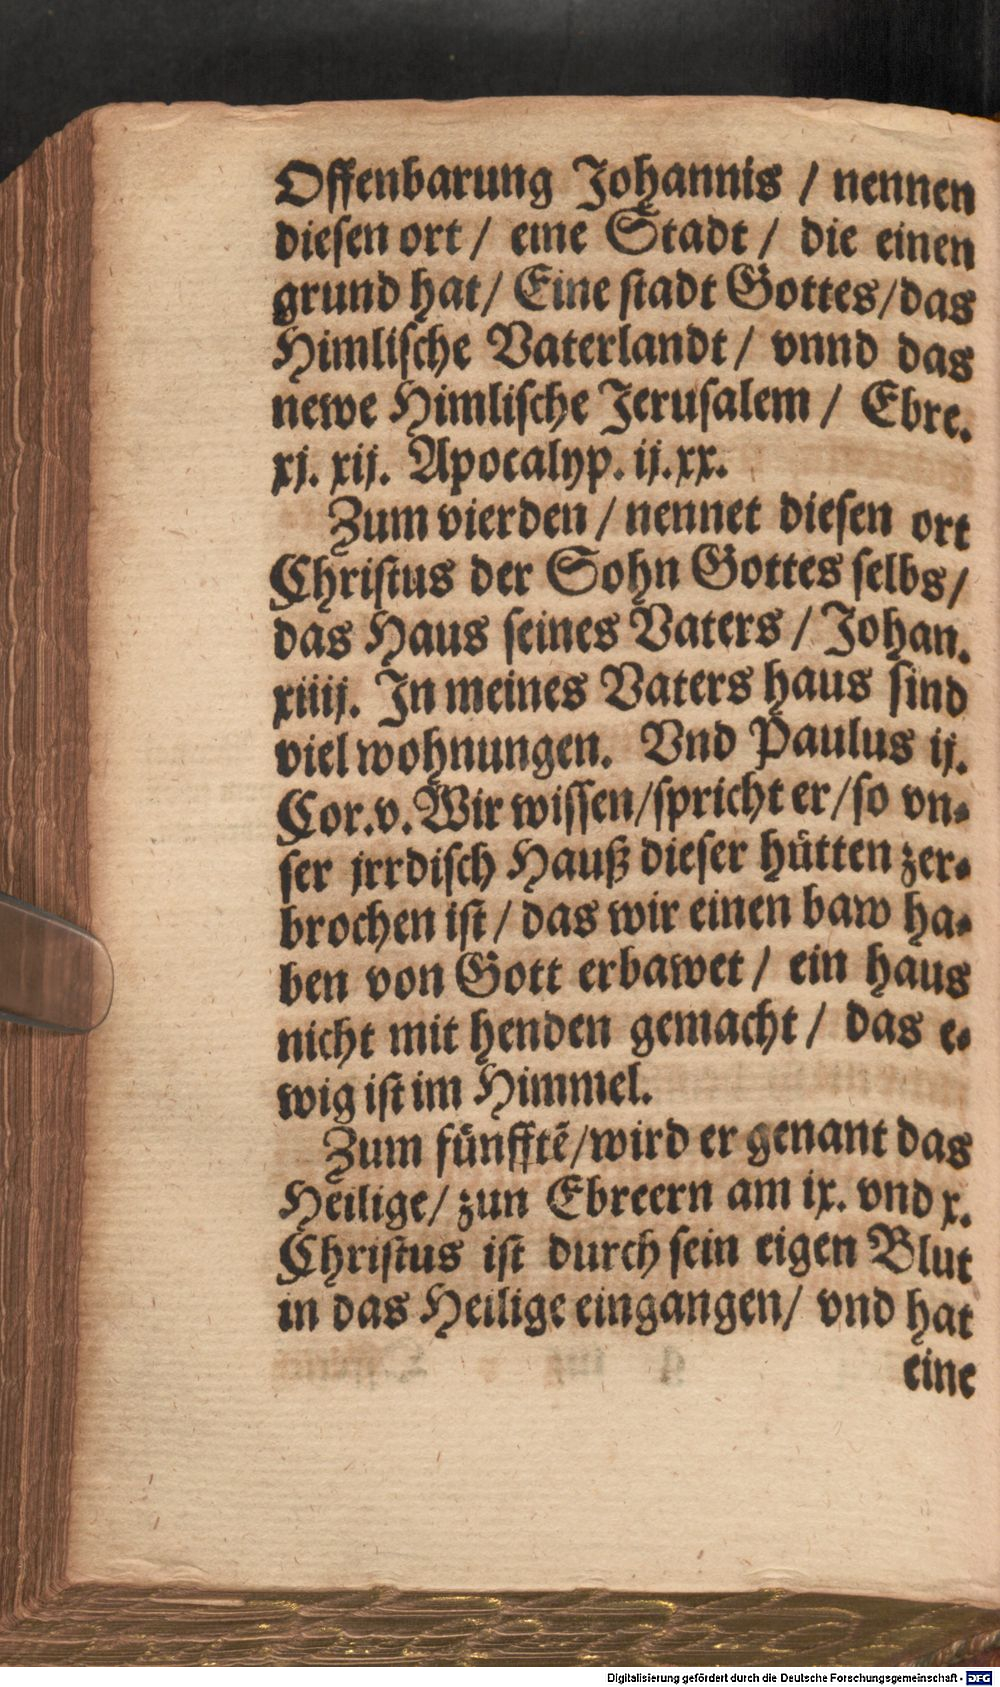 Offenbarung Johannis / nennen
diesen ort / eine Stadt / die einen
grund hat / Eine stadt Gottes / das
Himlische Vaterlandt / vnnd das
newe Himlische Jerusalem / Ebre.
xj. xij. Apocalyp. ij. xx.
Zum vierden / nennet diesen ort
Christus der Sohn Gottes selbs /
das Haus seines Vaters / Johan.
xiiij. In meines Vaters haus sind
viel wohnungen. Vnd Paulus ij.
Cor. v. Wir wissen / spricht er / so vn⸗
ser jrrdisch Hauß dieser hütten zer⸗
brochen ist / das wir einen baw ha⸗
ben von Gott erbawet / ein haus
nicht mit henden gemacht / das e⸗
wig ist im Himmel.
Zum fünfftẽ / wird er genant das
Heilige / zun Ebreern am ix. vnd x.
Christus ist durch sein eigen Blut
in das Heilige eingangen / vnd hat
eine
Digitalisierung gefördert durch die Deutsche Forschungsgemeinschaft - DFG